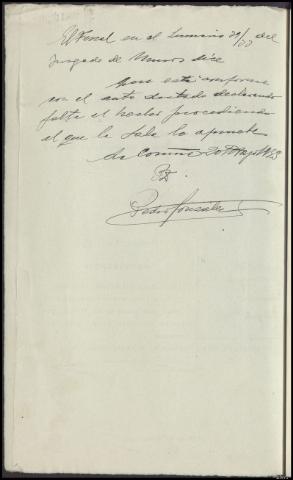 El Fiscal en el Sumario 29/33 del
Juzgado de Muros dice
que está conforme
con el auto dictado declarando
falta el hecho procediendo
el que la Sala lo apruebe
La Coruña 20 Mayo
PD.
Pedro González